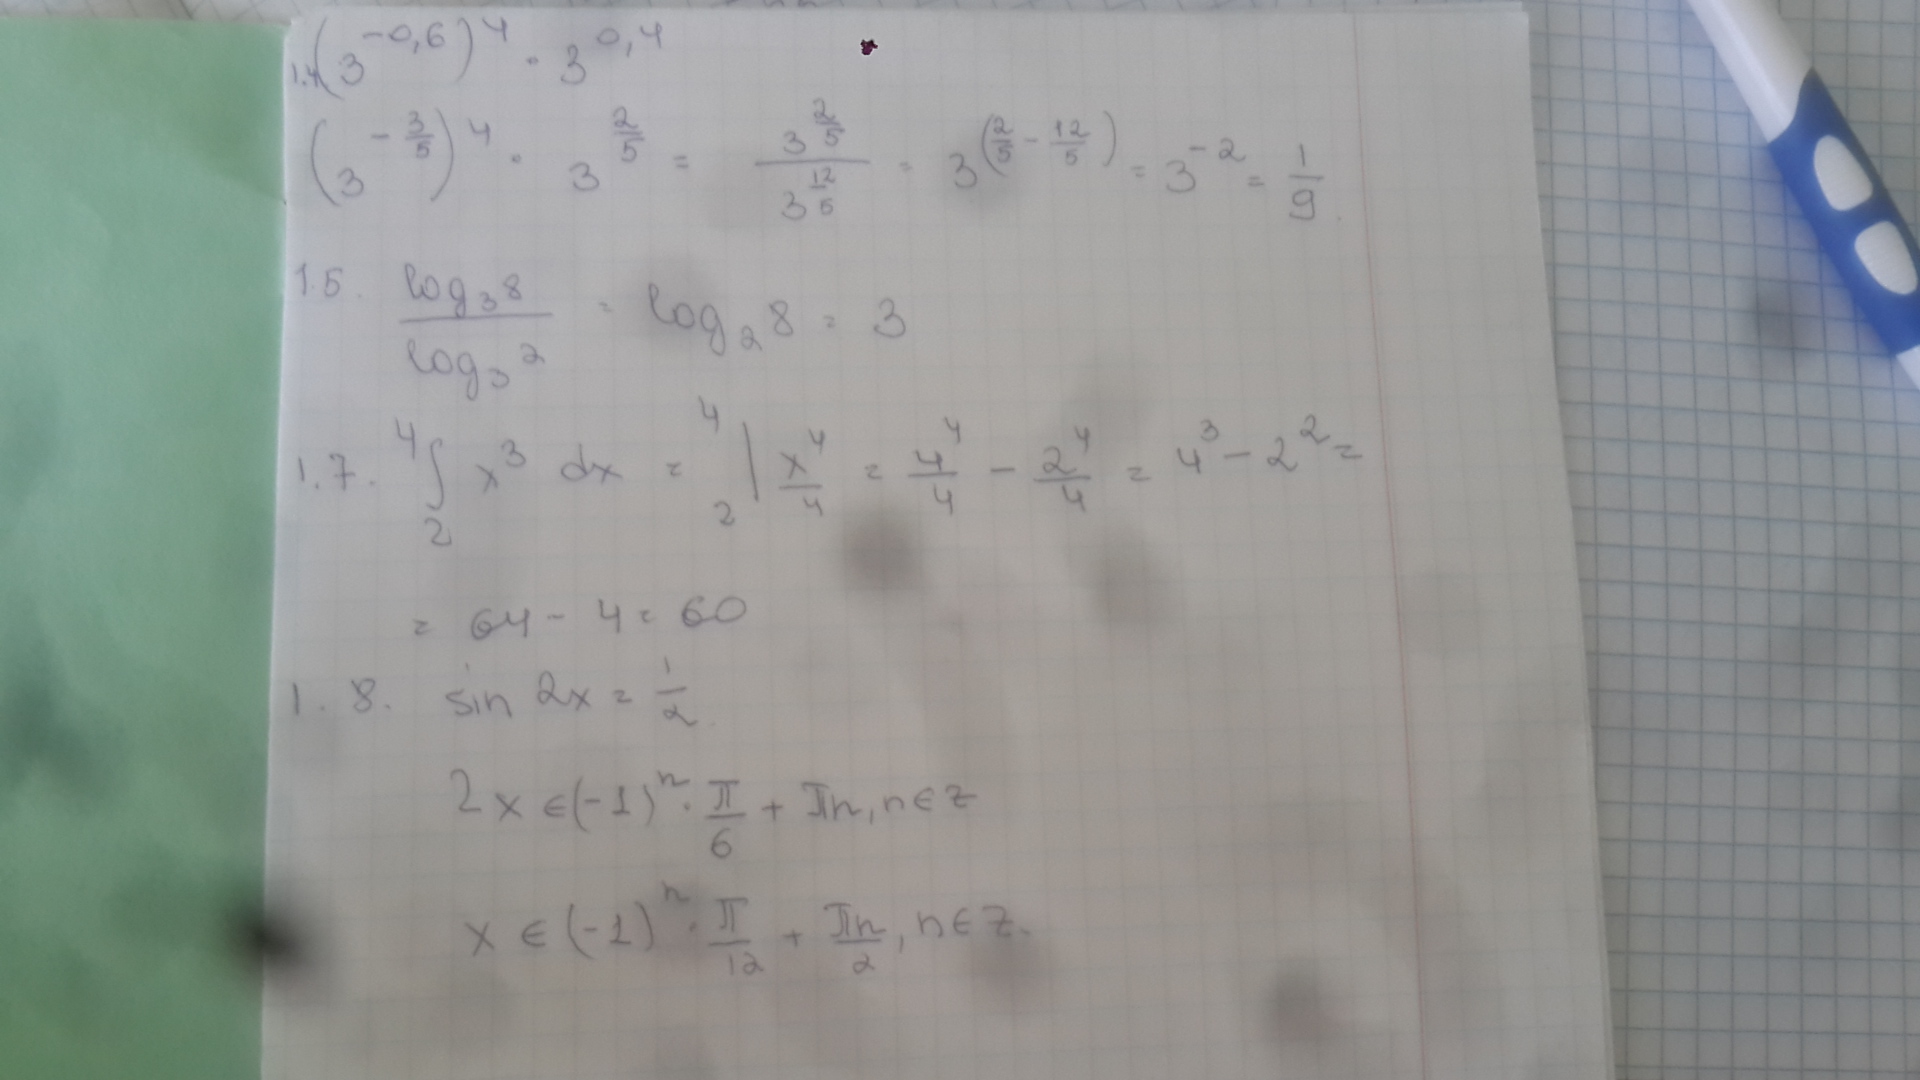 1.4 (3^{-0,6})^4 · 3^{0,4}
(3^{-\frac{3}{5}})^4 · 3^{\frac{2}{5}} = \frac{3^{\frac{2}{5}}}{3^{\frac{12}{5}}} = 3^{(\frac{2}{5} - \frac{12}{5})} = 3^{-2} = \frac{1}{9}.
1.5. \frac{log_3 8}{log_3 2} = log_2 8 = 3
1.7. ^4∫_2 x^3 dx = ^4_2| \frac{x^4}{4} = \frac{4^4}{4} - \frac{2^4}{4} = 4^3 - 2^2 =
= 64 - 4 = 60
1.8. sin 2x = \frac{1}{2}.
2x ∈ (-1)^n · \frac{π}{6} + πn, n ∈ z
x ∈ (-1)^n · \frac{π}{12} + \frac{πn}{2}, n ∈ z.